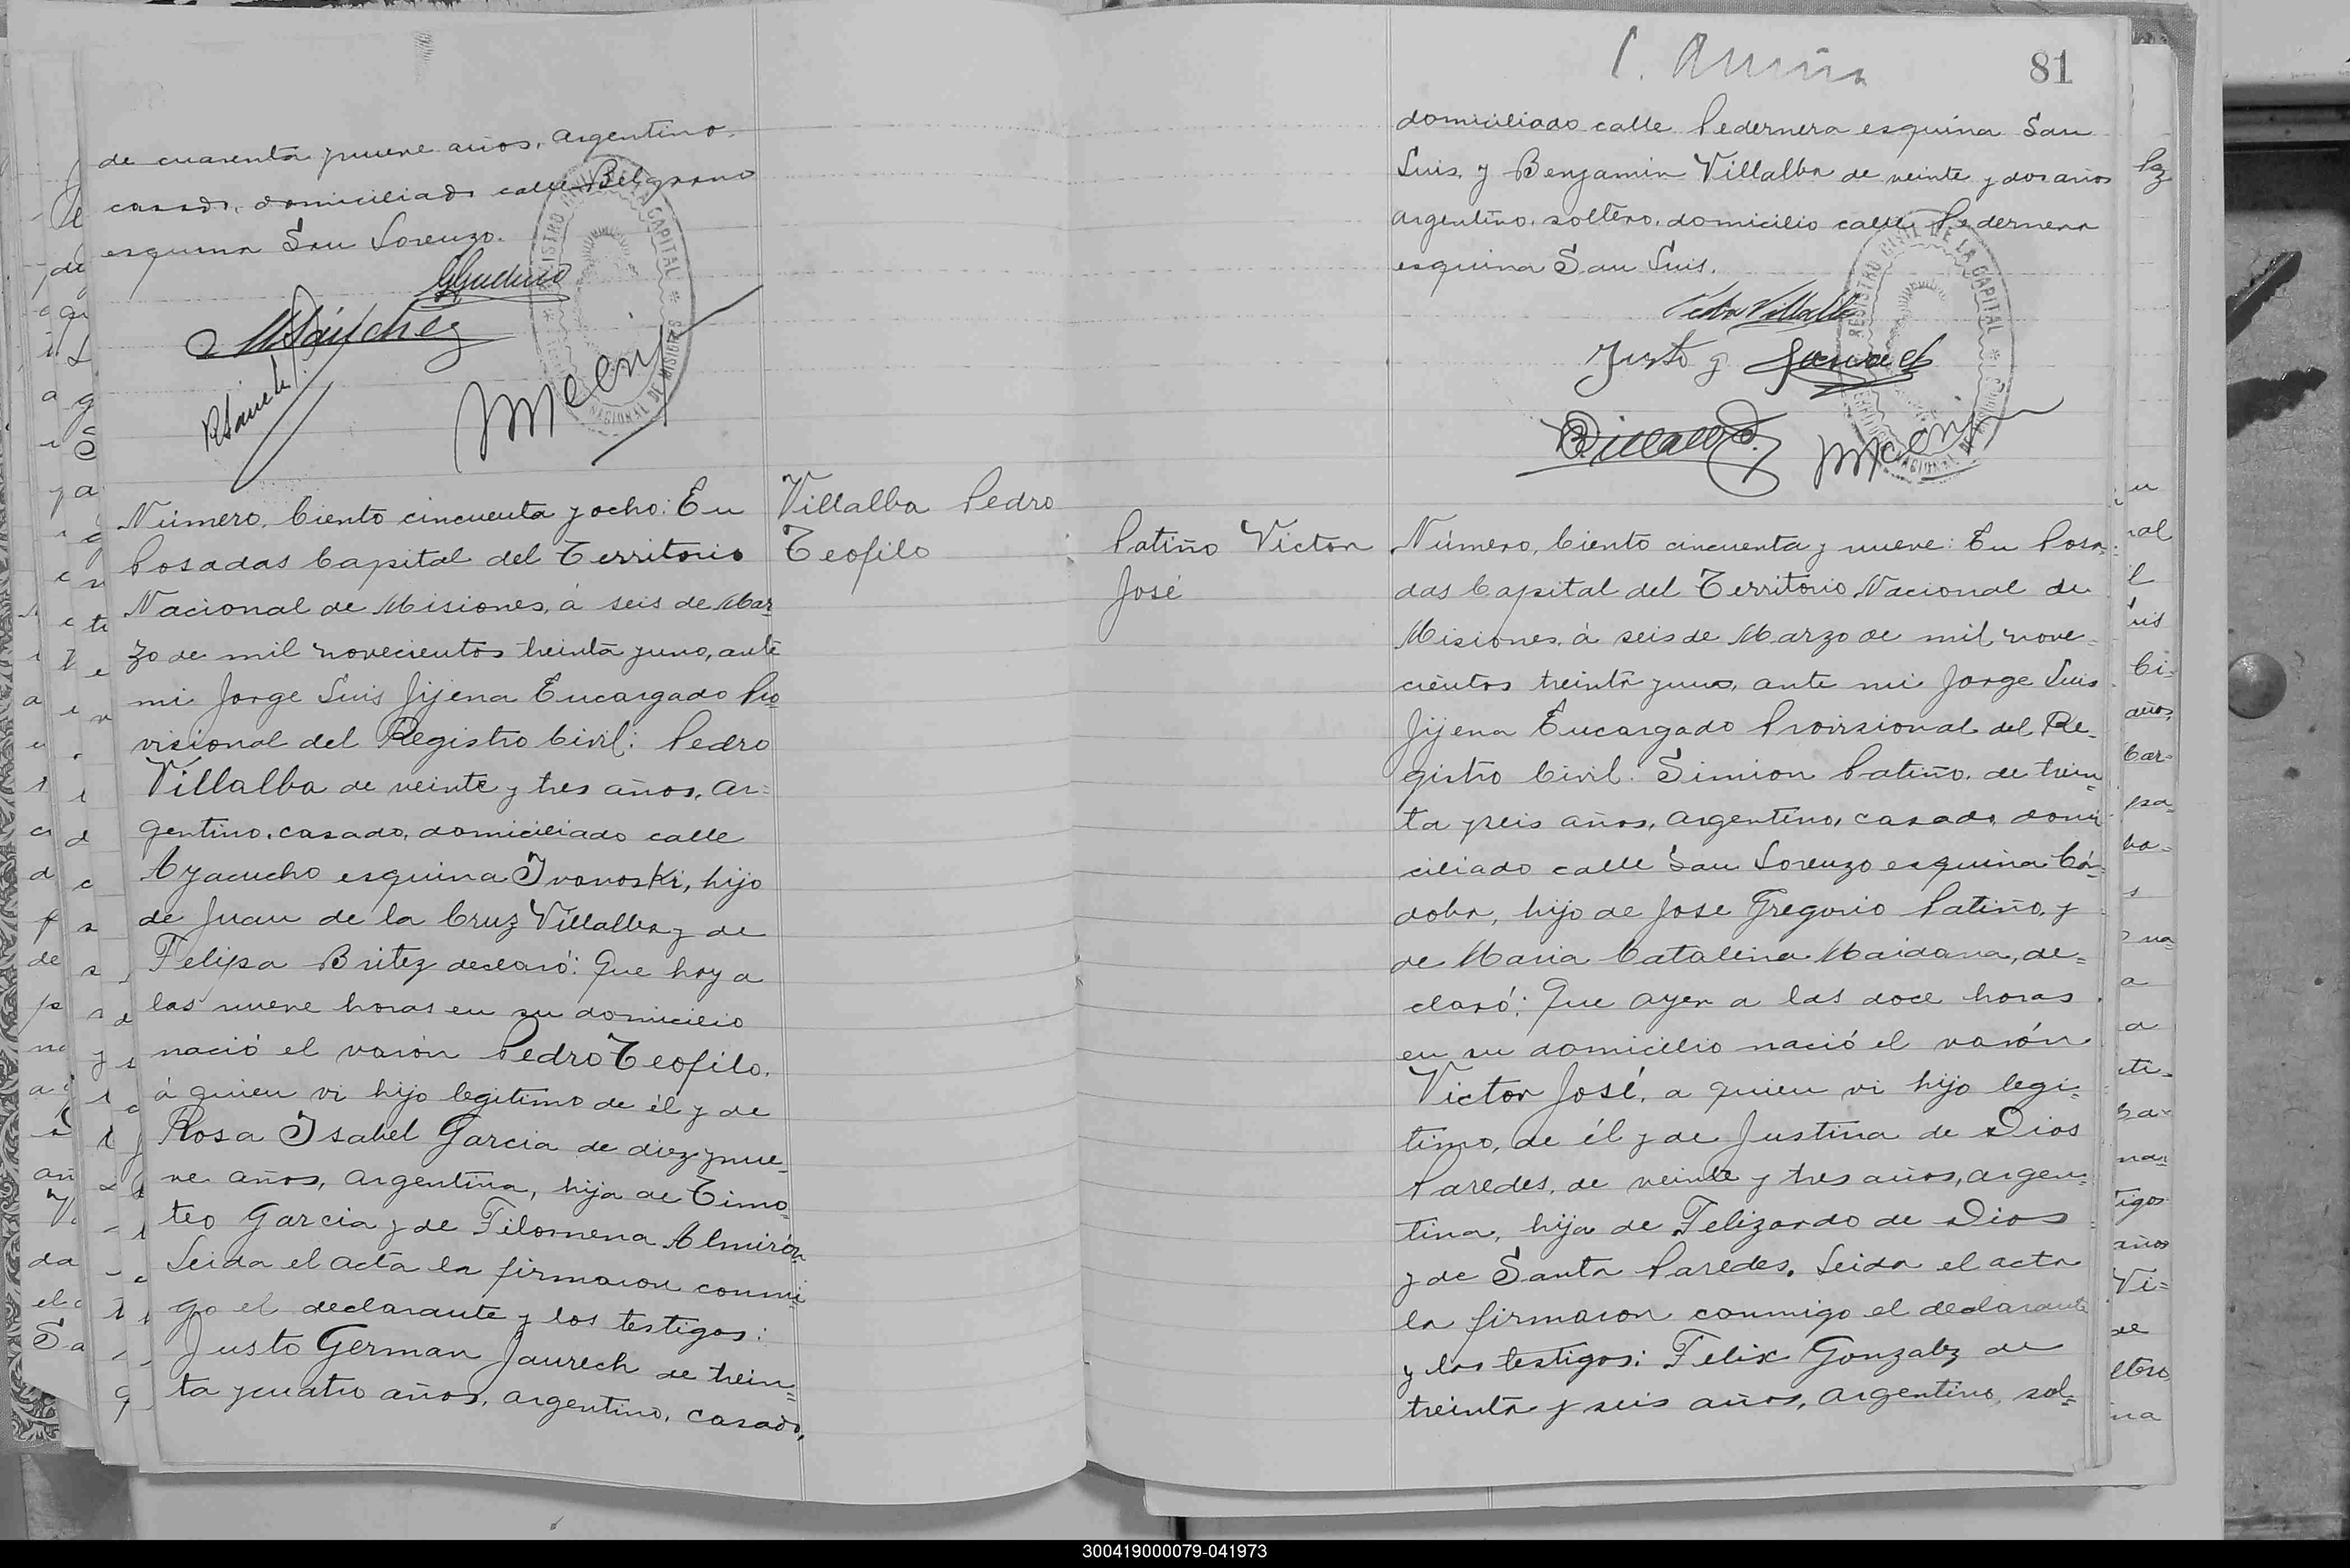 de cuarenta y nueve años, argentino,
casado, domiciliado calle Belgrano
esquina San Lorenzo.
GGudino
MSánchez
RSanchez
Villalba Pedro
Teofilo
Número, Ciento cincuenta y ocho: En
Posadas Capital del Territorio
Nacional de Misiones, á seis de Mar
zo de mil novecientos treinta y uno, ante
mi Jorge Luis Jijena Encargado Pro
visional del Registro Civil: Pedro
Villalba de veinte y tres años, ar=
gentino, casado, domiciliado calle
Ayacucho esquina Ivonoski, hijo
de Juan de la Cruz Villalba y de
Felipa Britez declaró: Que hoy a
las nueve horas en su domicilio
nació el varón Pedro Teofilo,
á quien vi hijo legitimo de él y de
Rosa Isabel Garcia de diez y nue=
ve años, argentina, hija de Timo
teo Garcia y de Filomena Almirón
Leida el acta la firmaron conmi
go el declarante y los testigos:
Justo German Jaurech de trein=
ta y cuatro años, argentino, casado,
81
domiciliado calle Pedernera esquina San
Luis, y Benjamin Villalba de veinte y dos años
argentino, soltero, domicilio calle Pedernera
esquina San Luis.
Pedro Villalba
Justo g Jaurech
BVillalba
REGISTRO CIVIL DE LA CAPITAL
NACIONAL DE MISIONES
Patiño Victor
José
Número, Ciento cincuenta y nueve: En Posa=
das Capital del Territorio Nacional de
Misiones, á seis de Marzo de mil nove=
cientos treinta y uno, ante mi Jorge Luis
Jijena Encargado Provisional del Re=
gistro Civil: Simion Patiño, de trein
ta y seis años, argentino, casado, domi
ciliado calle San Lorenzo esquina Cór=
doba, hijo de Jose Gregorio Patiño, y
de Maria Catalina Maidana, de=
claró: Que ayer a las doce horas
en su domicilio nació el varón
Victor José, a quien vi hijo legi=
timo, de él y de Justina de Dios
Paredes, de veinte y tres años, argen=
tina, hija de Felizardo de Dios
y de Santa Paredes. Leida el acta
la firmaron conmigo el declarante
y los testigos: Felix Gonzalez de
treinta y seis años, argentino, sol=
300419000079-041973